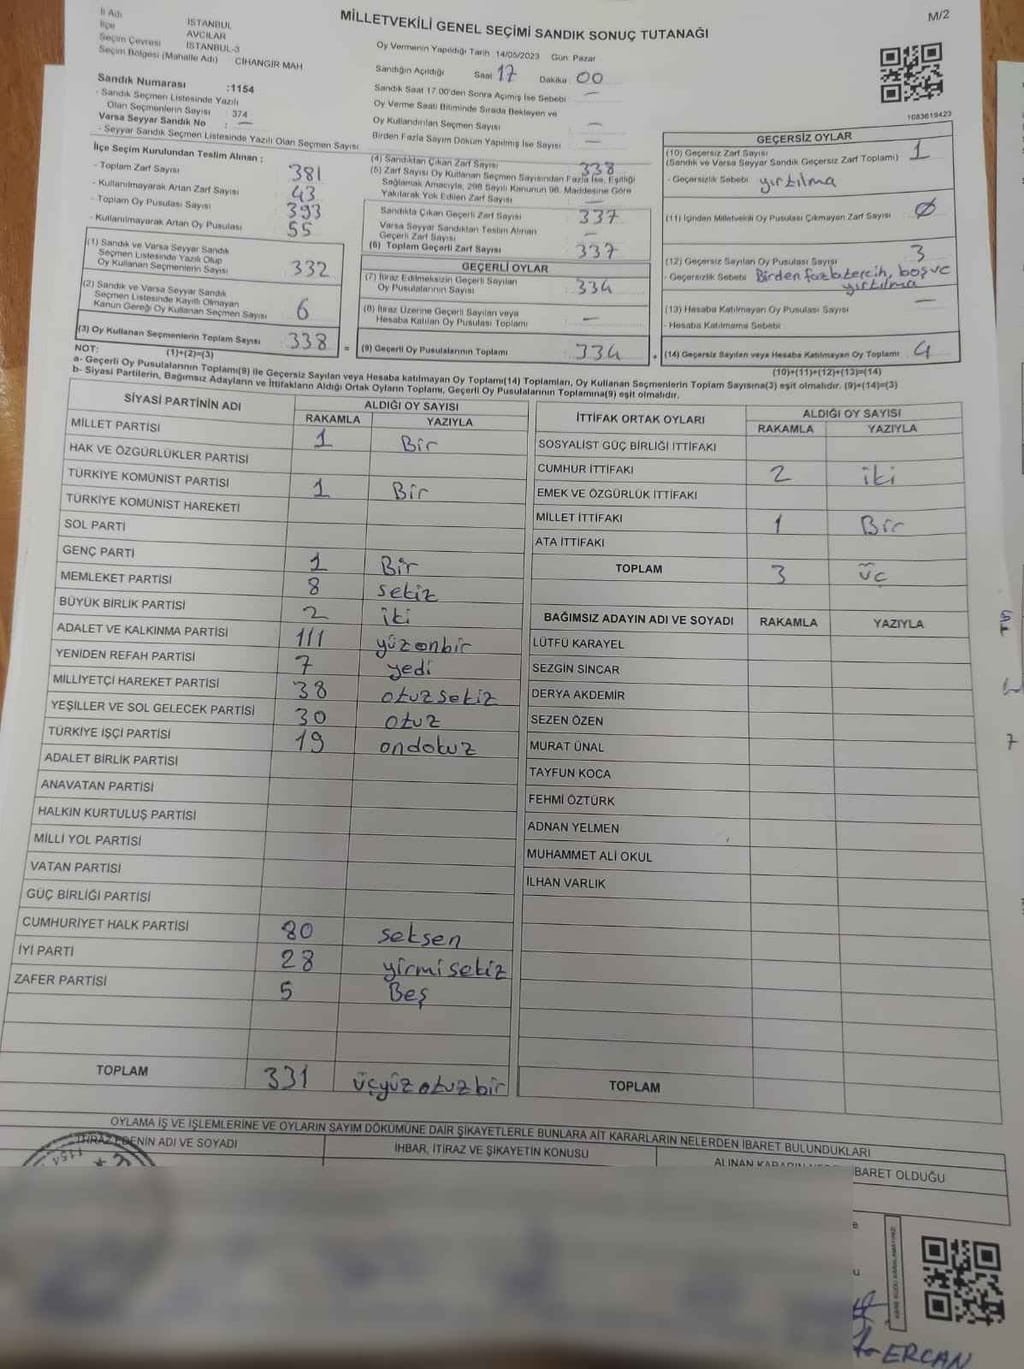 İl Adı İSTANBUL
İlçe AVCILAR
Seçim Çevresi İSTANBUL-3
Seçim Bölgesi (Mahalle Adı) CİHANGİR MAH
MİLLETVEKİLİ GENEL SEÇİMİ SANDIK SONUÇ TUTANAĞI
M/2
Oy Vermenin Yapıldığı Tarih :14/05/2023 Gün: Pazar
Sandığın Açıldığı Saat 17 Dakika 00
Sandık Saat 17.00'den Sonra Açılmış İse Sebebi —
Oy Verme Saati Bitiminde Sırada Bekleyen ve
Oy Kullandırılan Seçmen Sayısı —
Birden Fazla Sayım Döküm Yapılmış İse Sayısı —
1083619423
Sandık Numarası :1154
- Sandık Seçmen Listesinde Yazılı
Olan Seçmenlerin Sayısı 374
Varsa Seyyar Sandık No : —
- Seyyar Sandık Seçmen Listesinde Yazılı Olan Seçmen Sayısı
İlçe Seçim Kurulundan Teslim Alınan :
- Toplam Zarf Sayısı 381
- Kullanılmayarak Artan Zarf Sayısı 43
- Toplam Oy Pusulası Sayısı 393
- Kullanılmayarak Artan Oy Pusulası 55
(1) Sandık ve Varsa Seyyar Sandık
Seçmen Listesinde Yazılı Olup
Oy Kullanan Seçmenlerin Sayısı 332
(2) Sandık ve Varsa Seyyar Sandık
Seçmen Listesinde Kayıtlı Olmayan
Kanun Gereği Oy Kullanan Seçmen Sayısı 6
(3) Oy Kullanan Seçmenlerin Toplam Sayısı 338
(1)+(2)=(3)
(4) Sandıktan Çıkan Zarf Sayısı 338
(5) Zarf Sayısı Oy Kullanan Seçmen Sayısından Fazla İse, Eşitliği
Sağlamak Amacıyla, 298 Sayılı Kanunun 98. Maddesine Göre
Yakılarak Yok Edilen Zarf Sayısı —
Sandıkta Çıkan Geçerli Zarf Sayısı 337
Varsa Seyyar Sandıktan Teslim Alınan
Geçerli Zarf Sayısı —
(6) Toplam Geçerli Zarf Sayısı 337
GEÇERLİ OYLAR
(7) İtiraz Edilmeksizin Geçerli Sayılan
Oy Pusulalarının Sayısı 334
(8) İtiraz Üzerine Geçerli Sayılan veya
Hesaba Katılan Oy Pusulası Toplamı —
= (9) Geçerli Oy Pusulalarının Toplamı 334
GEÇERSİZ OYLAR
(10) Geçersiz Zarf Sayısı 1
(Sandık ve Varsa Seyyar Sandık Geçersiz Zarf Toplamı)
- Geçersizlik Sebebi yırtılma
(11) İçinden Milletvekili Oy Pusulası Çıkmayan Zarf Sayısı Ø
(12) Geçersiz Sayılan Oy Pusulası Sayısı 3
- Geçersizlik Sebebi Birden fazla tercih, boş ve
yırtılma
(13) Hesaba Katılmayan Oy Pusulası Sayısı —
- Hesaba Katılmama Sebebi
+ (14) Geçersiz Sayılan veya Hesaba Katılmayan Oy Toplamı 4
(10)+(11)+(12)+(13)=(14)
NOT:
a- Geçerli Oy Pusulalarının Toplamı(9) ile Geçersiz Sayılan veya Hesaba katılmayan Oy Toplamı(14) Toplamları, Oy Kullanan Seçmenlerin Toplam Sayısına(3) eşit olmalıdır. (9)+(14)=(3)
b- Siyasi Partilerin, Bağımsız Adayların ve İttifakların Aldığı Ortak Oyların Toplamı, Geçerli Oy Pusulalarının Toplamına(9) eşit olmalıdır.
SİYASİ PARTİNİN ADI ALDIĞI OY SAYISI
RAKAMLA YAZIYLA
MİLLET PARTİSİ 1 Bir
HAK VE ÖZGÜRLÜKLER PARTİSİ
TÜRKİYE KOMÜNİST PARTİSİ 1 Bir
TÜRKİYE KOMÜNİST HAREKETİ
SOL PARTİ
GENÇ PARTİ 1 Bir
MEMLEKET PARTİSİ 8 sekiz
BÜYÜK BİRLİK PARTİSİ 2 iki
ADALET VE KALKINMA PARTİSİ 111 yüzonbir
YENİDEN REFAH PARTİSİ 7 yedi
MİLLİYETÇİ HAREKET PARTİSİ 38 otuzsekiz
YEŞİLLER VE SOL GELECEK PARTİSİ 30 otuz
TÜRKİYE İŞÇİ PARTİSİ 19 ondokuz
ADALET BİRLİK PARTİSİ
ANAVATAN PARTİSİ
HALKIN KURTULUŞ PARTİSİ
MİLLİ YOL PARTİSİ
VATAN PARTİSİ
GÜÇ BİRLİĞİ PARTİSİ
CUMHURİYET HALK PARTİSİ 80 seksen
İYİ PARTİ 28 yirmisekiz
ZAFER PARTİSİ 5 Beş
TOPLAM 331 üçyüzotuzbir
İTTİFAK ORTAK OYLARI ALDIĞI OY SAYISI
RAKAMLA YAZIYLA
SOSYALİST GÜÇ BİRLİĞİ İTTİFAKI
CUMHUR İTTİFAKI 2 iki
EMEK VE ÖZGÜRLÜK İTTİFAKI
MİLLET İTTİFAKI 1 Bir
ATA İTTİFAKI
TOPLAM 3 üç
BAĞIMSIZ ADAYIN ADI VE SOYADI RAKAMLA YAZIYLA
LÜTFÜ KARAYEL
SEZGİN SİNCAR
DERYA AKDEMİR
SEZEN ÖZEN
MURAT ÜNAL
TAYFUN KOCA
FEHMİ ÖZTÜRK
ADNAN YELMEN
MUHAMMET ALİ OKUL
İLHAN VARLIK
TOPLAM
OYLAMA İŞ VE İŞLEMLERİNE VE OYLARIN SAYIM DÖKÜMÜNE DAİR ŞİKAYETLERLE BUNLARA AİT KARARLARIN NELERDEN İBARET BULUNDUKLARI
İTİRAZ EDENİN ADI VE SOYADI
İHBAR, İTİRAZ VE ŞİKAYETİN KONUSU
ALINAN KARARIN İBARET OLDUĞU
1154
ERCAN
7